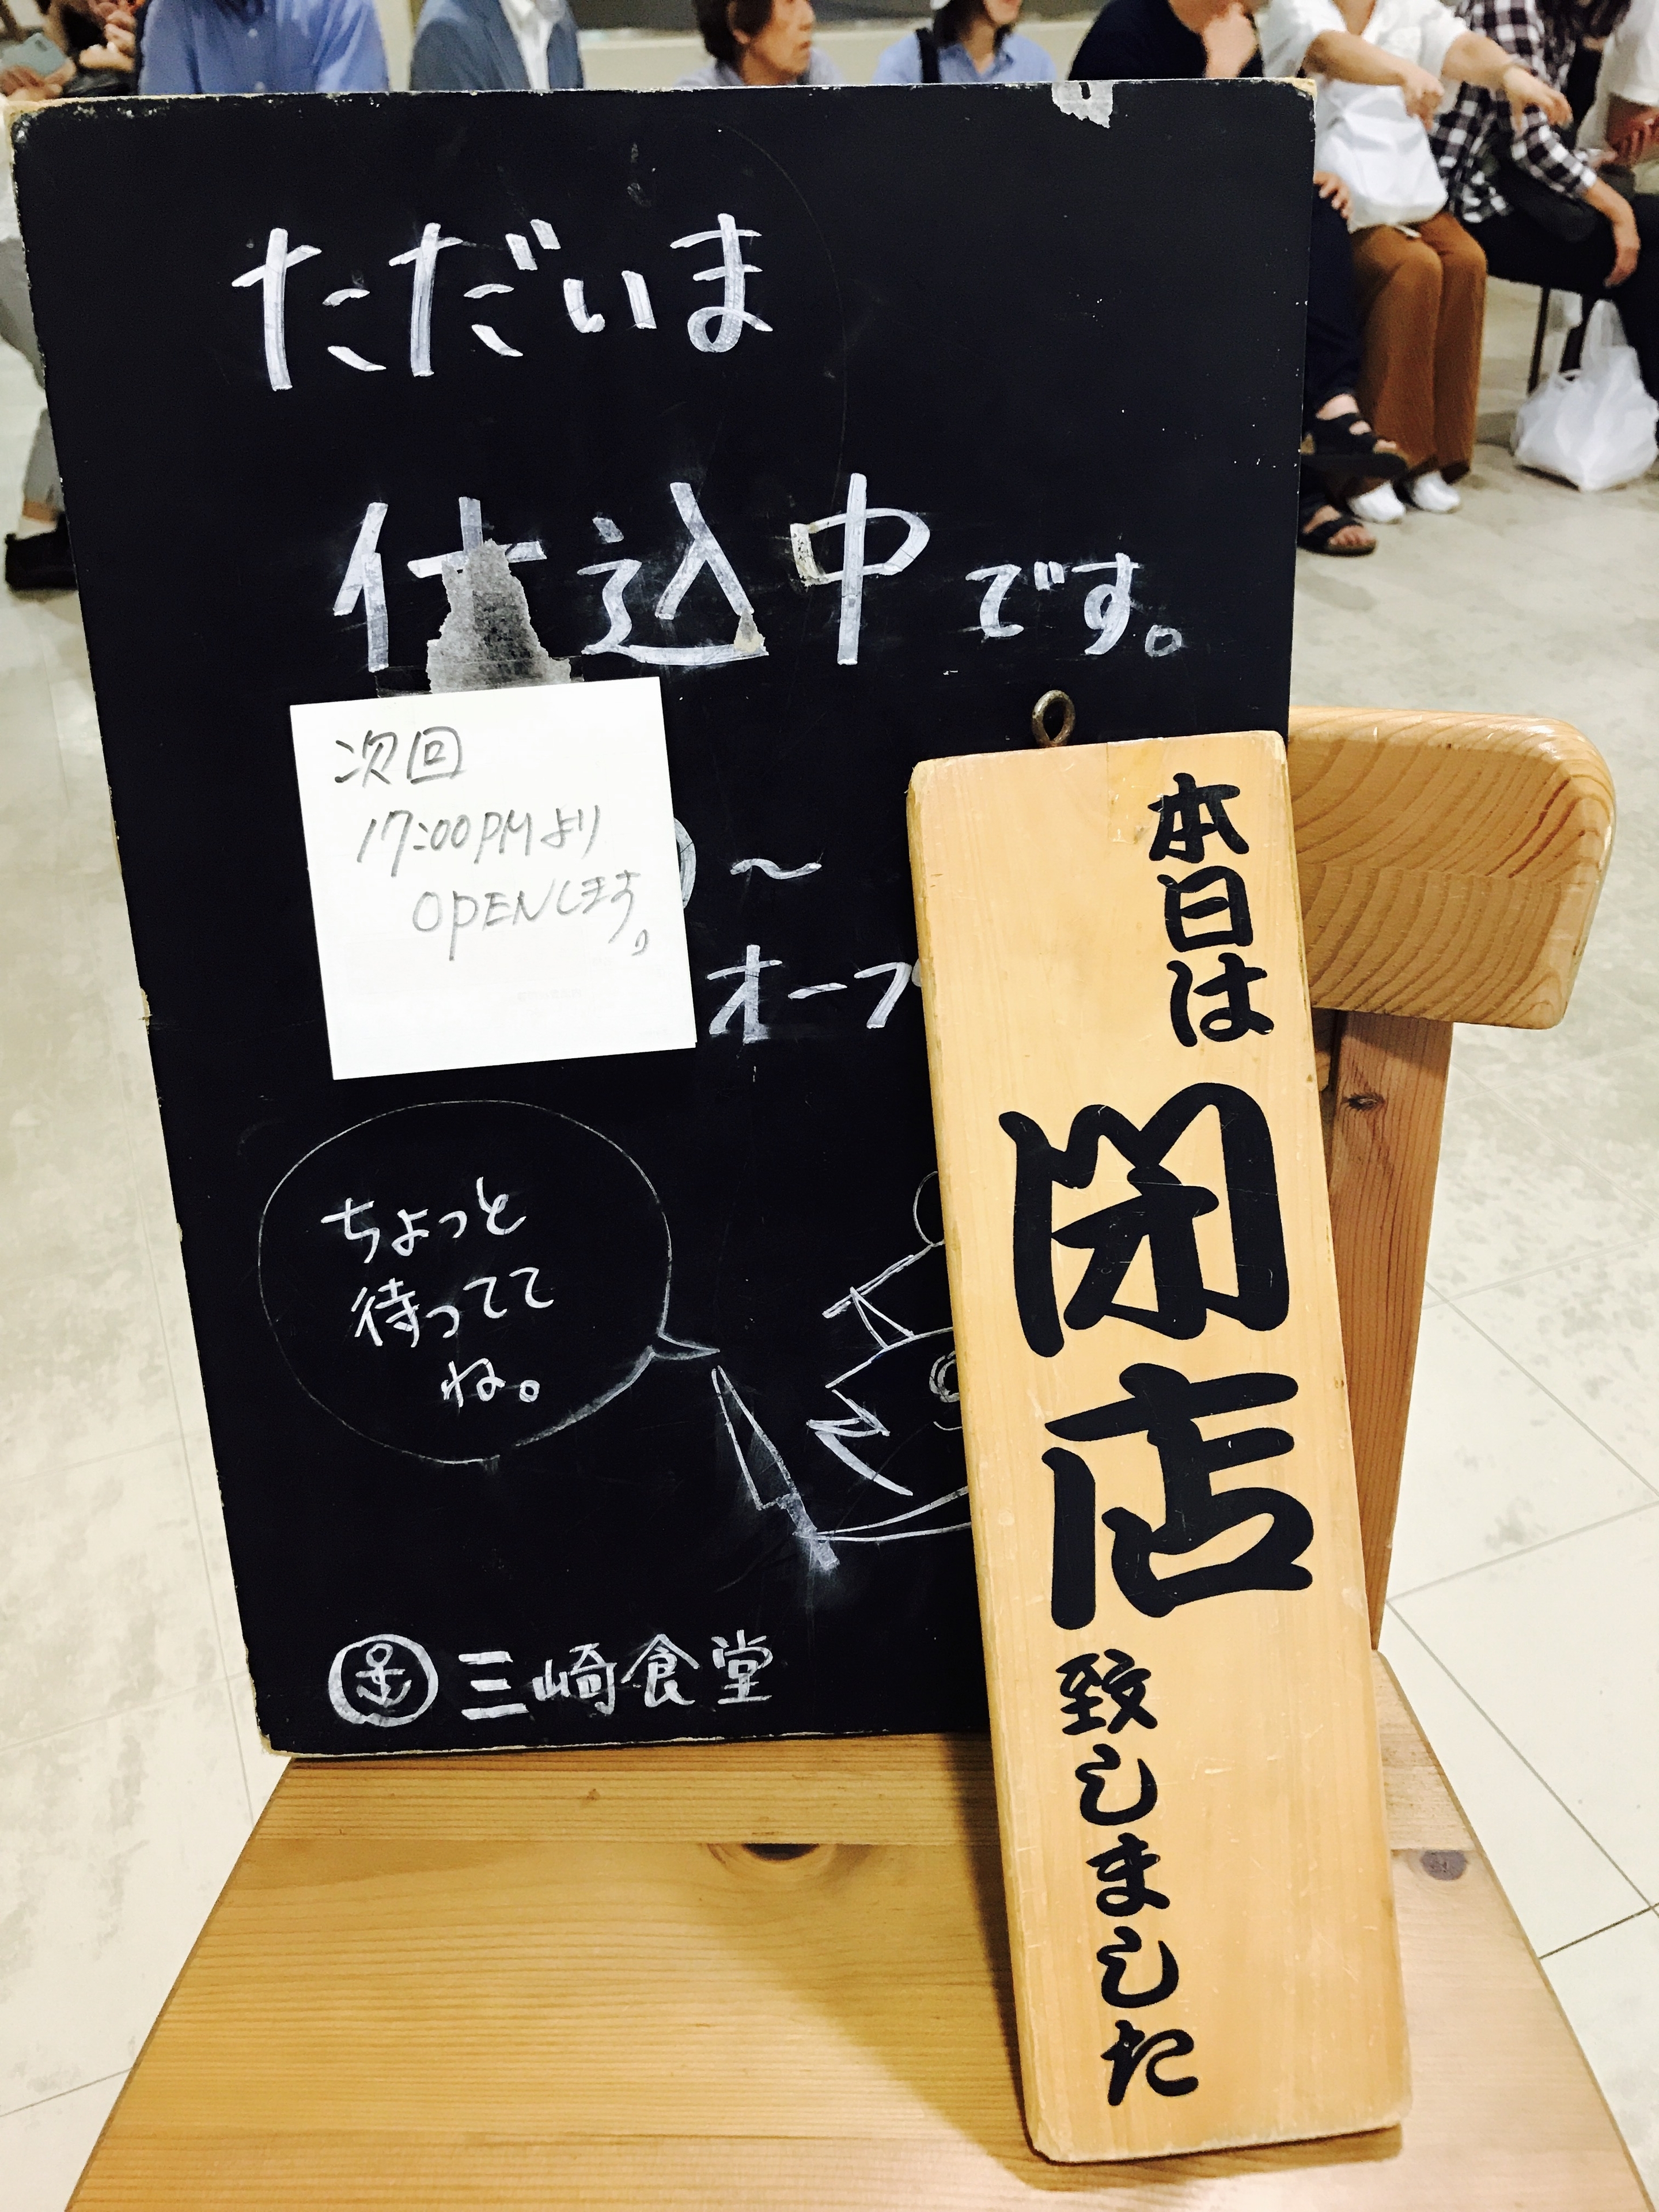 ただいま
仕込中です。
次回
17:00PMより
OPENします。
〜
オープ
ちょっと
待ってて
ね。
三崎食堂
本日は
閉店
致しました